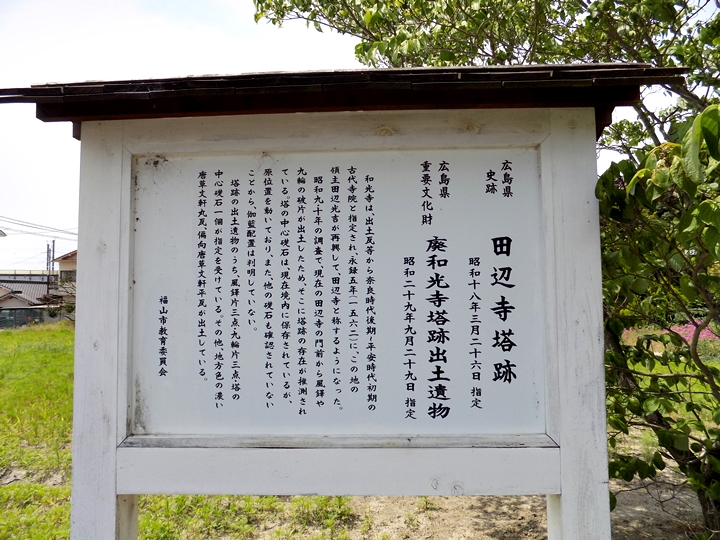 広島県
史跡
田辺寺塔跡
昭和十八年三月二十六日 指定
広島県
重要文化財
廃和光寺塔跡出土遺物
昭和二十九年九月二十九日 指定
和光寺は、出土瓦等から奈良時代後期~平安時代初期の
古代寺院と指定され、永録五年(一五六二)に、この地の
領主田辺光吉が再興して、田辺寺と称するようになった。
昭和九・十年の調査で、現在の田辺寺の門前から風鐸や
九輪の破片が出土したため、そこに塔跡の存在が推測され
ている。塔の中心礎石は、現在境内に保存されているが、
原位置を動いており、また、他の礎石も確認されていない
ことから、伽藍配置は判明していない。
塔跡の出土遺物のうち、風鐸片三点・九輪片三点・塔の
中心礎石一個が指定を受けている。その他、地方色の濃い
唐草文軒丸瓦、偏向唐草文軒平瓦が出土している。
福山市教育委員会